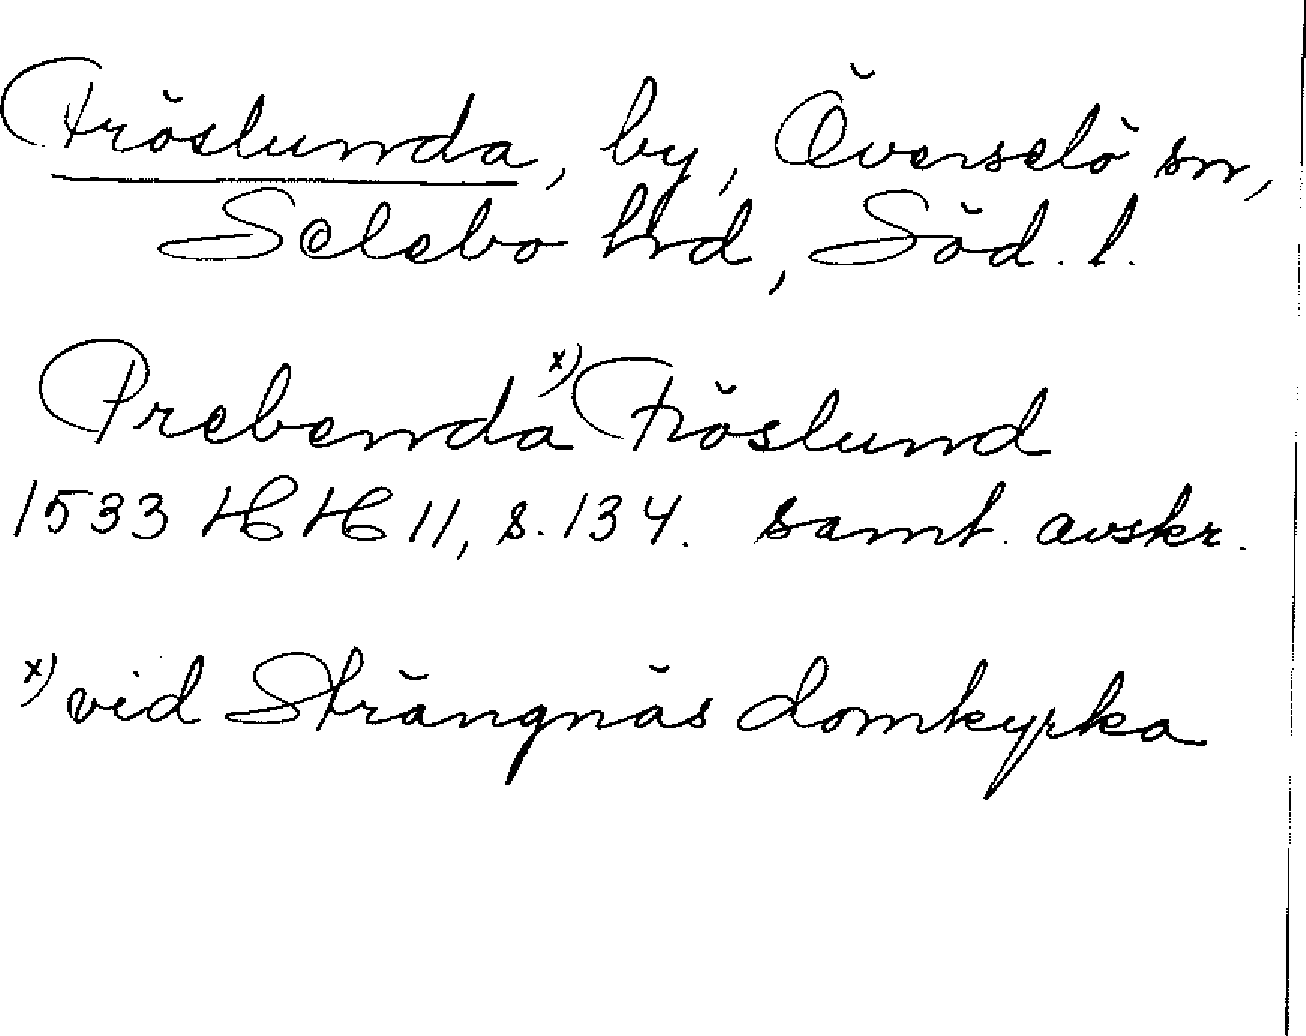 Fröslunda, by, Överselö sn,
Selebo hrd, Söd. l.
Prebenda x) Fröslund
1533 HH 11, s. 134. samt. avskr.
x) vid Strängnäs domkyrka